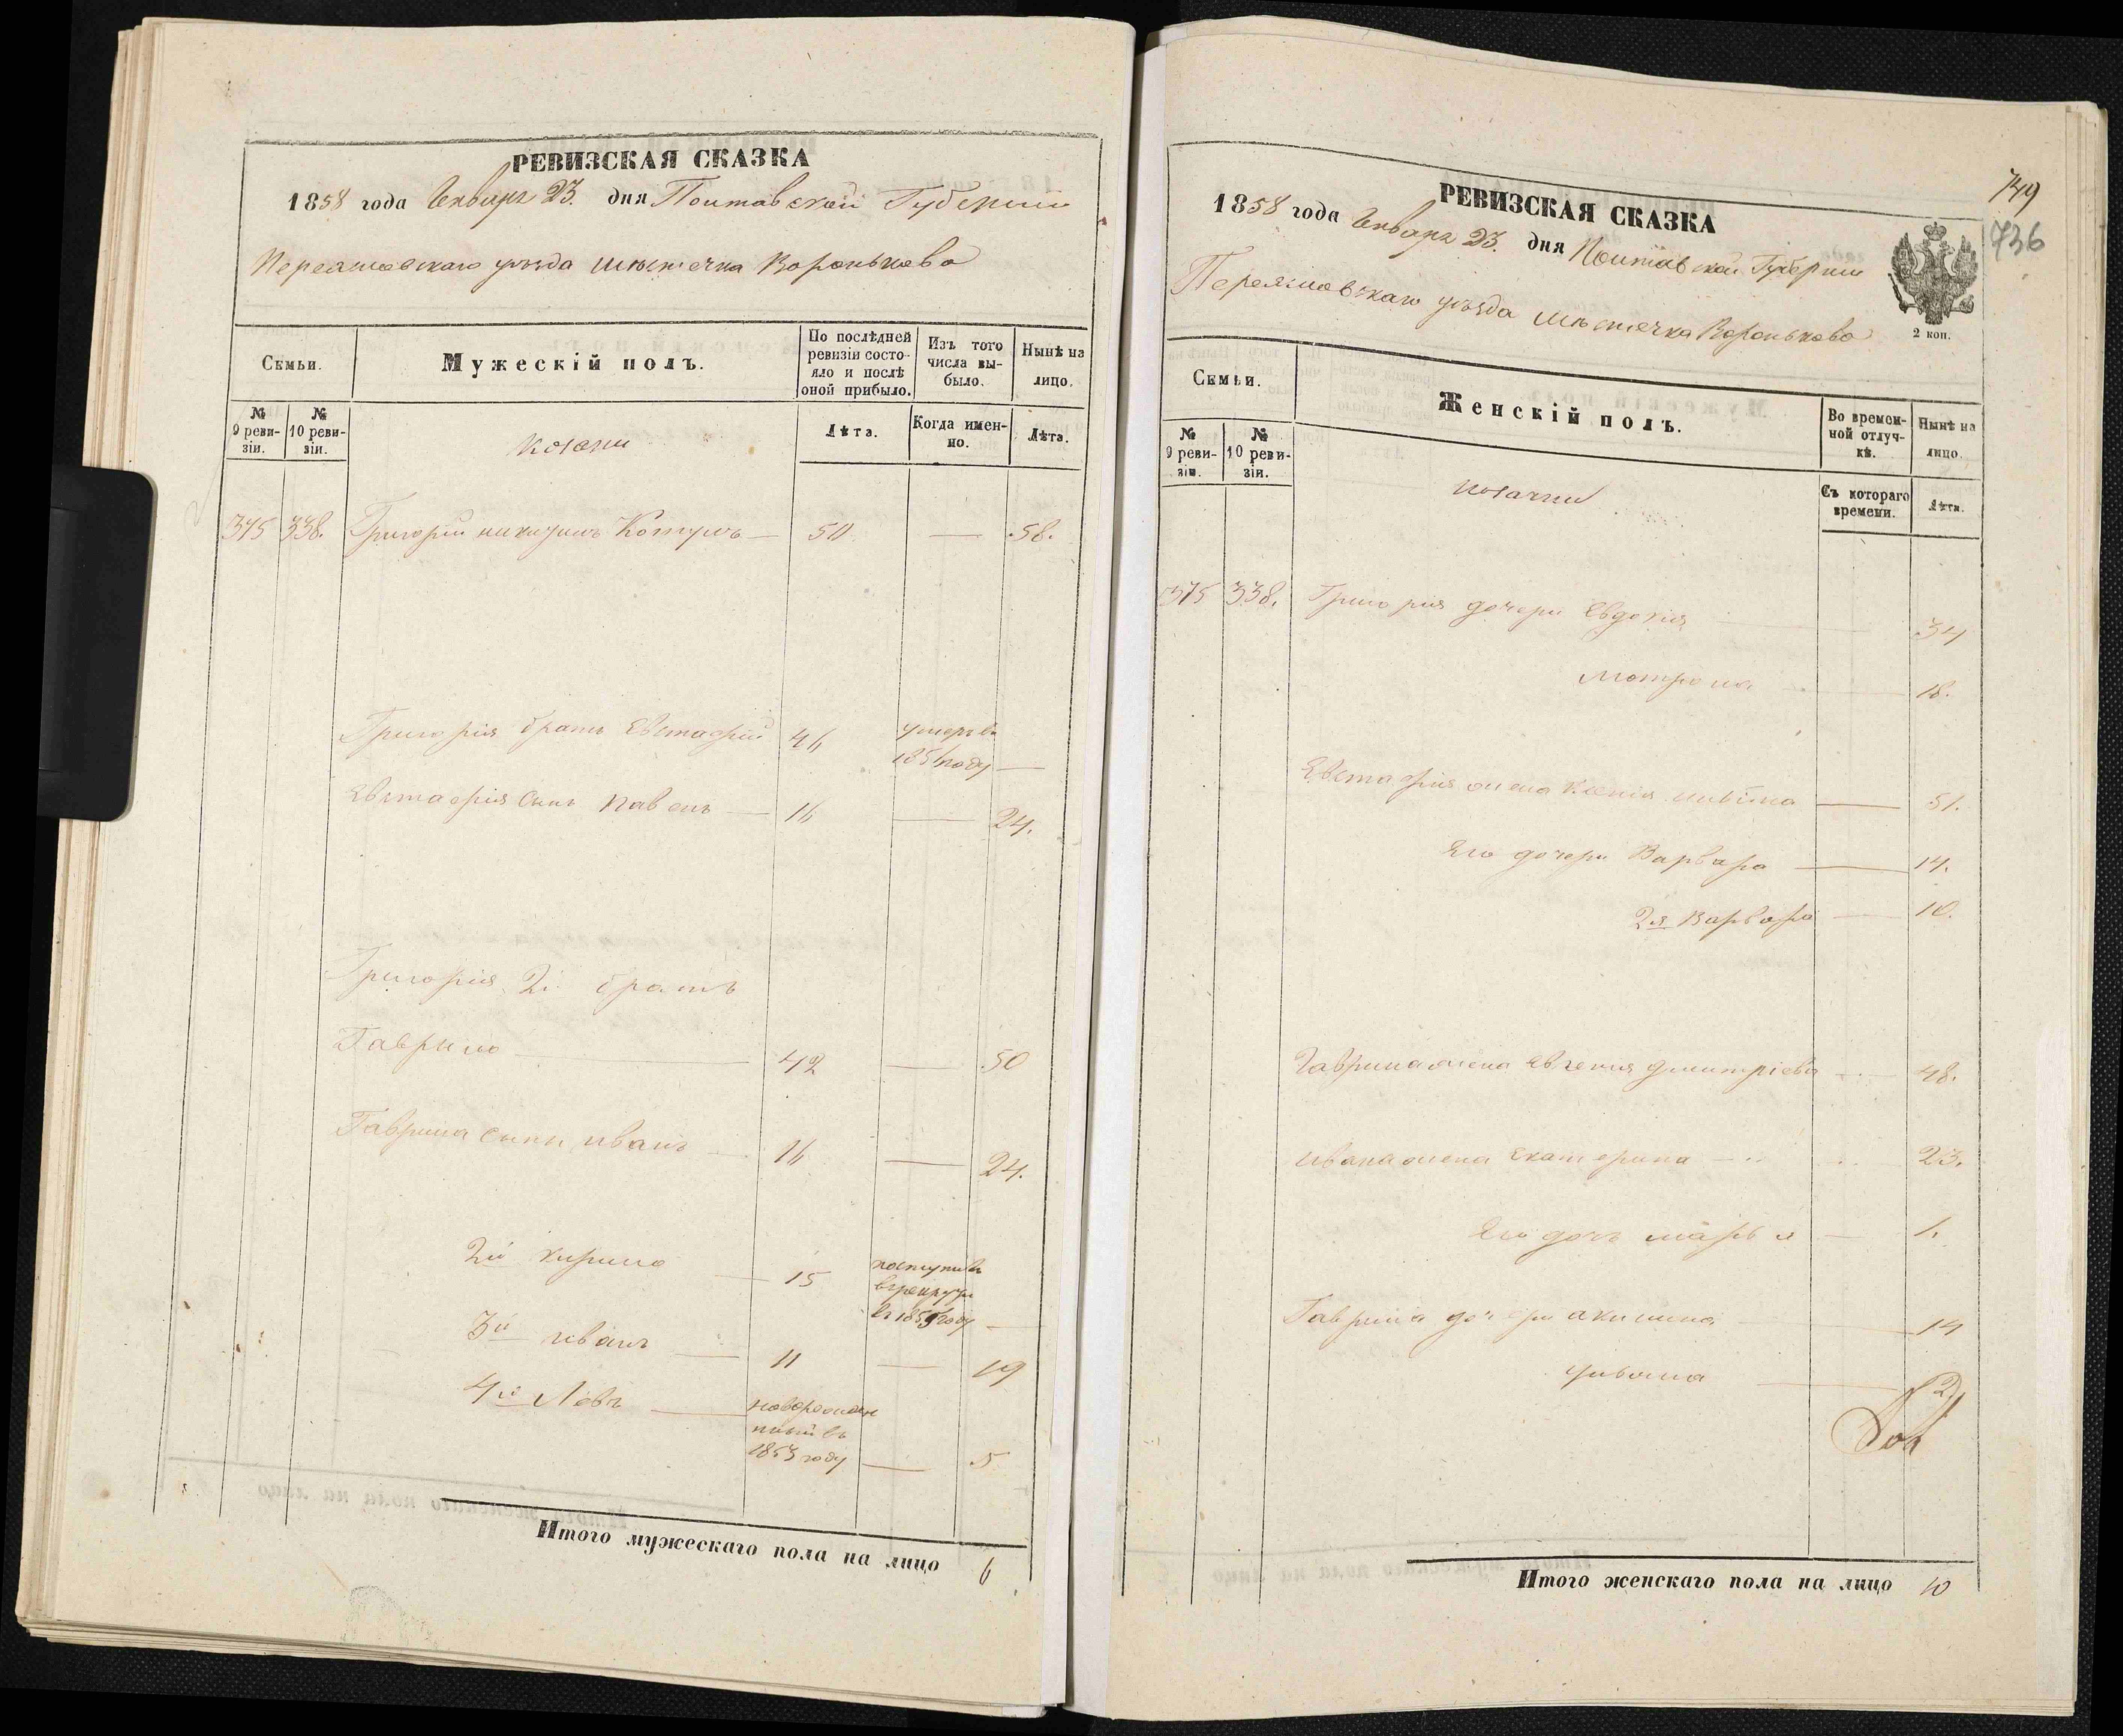 РЕВИЗСКАЯ СКАЗКА
1858 года Января 23. дня Полтавской Губерніи
Переяславскаго уѣзда мѣстечка Воронькова
Семьи.
Мужескій полъ.
По послѣдней ревизіи состо-
яло и послѣ оной прибыло.
Изъ того числа вы-
было.
Нынѣ на лицо.
№ 9 реви-
зіи.
№ 10 реви-
зіи.
Козаки
Лѣта.
Когда имен-
но.
Лѣта.
375 338. Григорій Котушъ — 50 — 58.
Григорія братъ Евстафій 46 умеръ въ
1851 году —
Евстафія сынъ Павелъ — 16 — 24.
Григорія 2й братъ
Гаврило — 42 — 50
Гаврила сыны Иванъ 16 — 24.
2й Кирило — 15 поступилъ
въ рекруты
въ 1855 году —
3й Иванъ — 11 — 19
4й Левъ — новорожден
ный въ
1853 году — 5
Итого мужескаго пола на лицо 6
749
736
РЕВИЗСКАЯ СКАЗКА
1858 года Января 23. дня Полтавской Губерніи
Переяславскаго уѣзда мѣстечка Воронькова
2 коп.
Семьи.
Женскій полъ.
Во времен-
ной отлуч-
кѣ.
Нынѣ на лицо.
№ 9 реви-
зіи.
№ 10 реви-
зіи.
Козачки
Съ котораго времени.
Лѣта.
375 338. Григорія дочери Евдокія 34
Мотрона 18.
Евстафія жена Ксенія — 51.
Его дочери Варвара — 14.
2я Варвара — 10.
Гаврила жена Евгенія Дмитріева 48.
Ивана жена Екатерина 23.
Его дочь Марья — 1.
Гаврила дочери Акилина — 14
Ульяна — 2
Итого женскаго пола на лицо 10